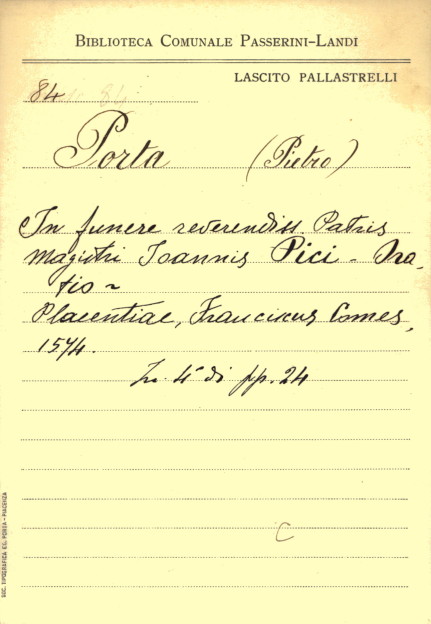 BIBLIOTECA COMUNALE PASSERINI-LANDI
LASCITO PALLASTRELLI
84
Porta (Pietro)
In funere reverendiss. Patris
Magistri Joannis Pici - Ora-
tio ~
Placentiae, Franciscus Comes,
1574.
In. 4° di pp. 24
C
SOC. TIPOGRAFICA ED. PORTA - PIACENZA